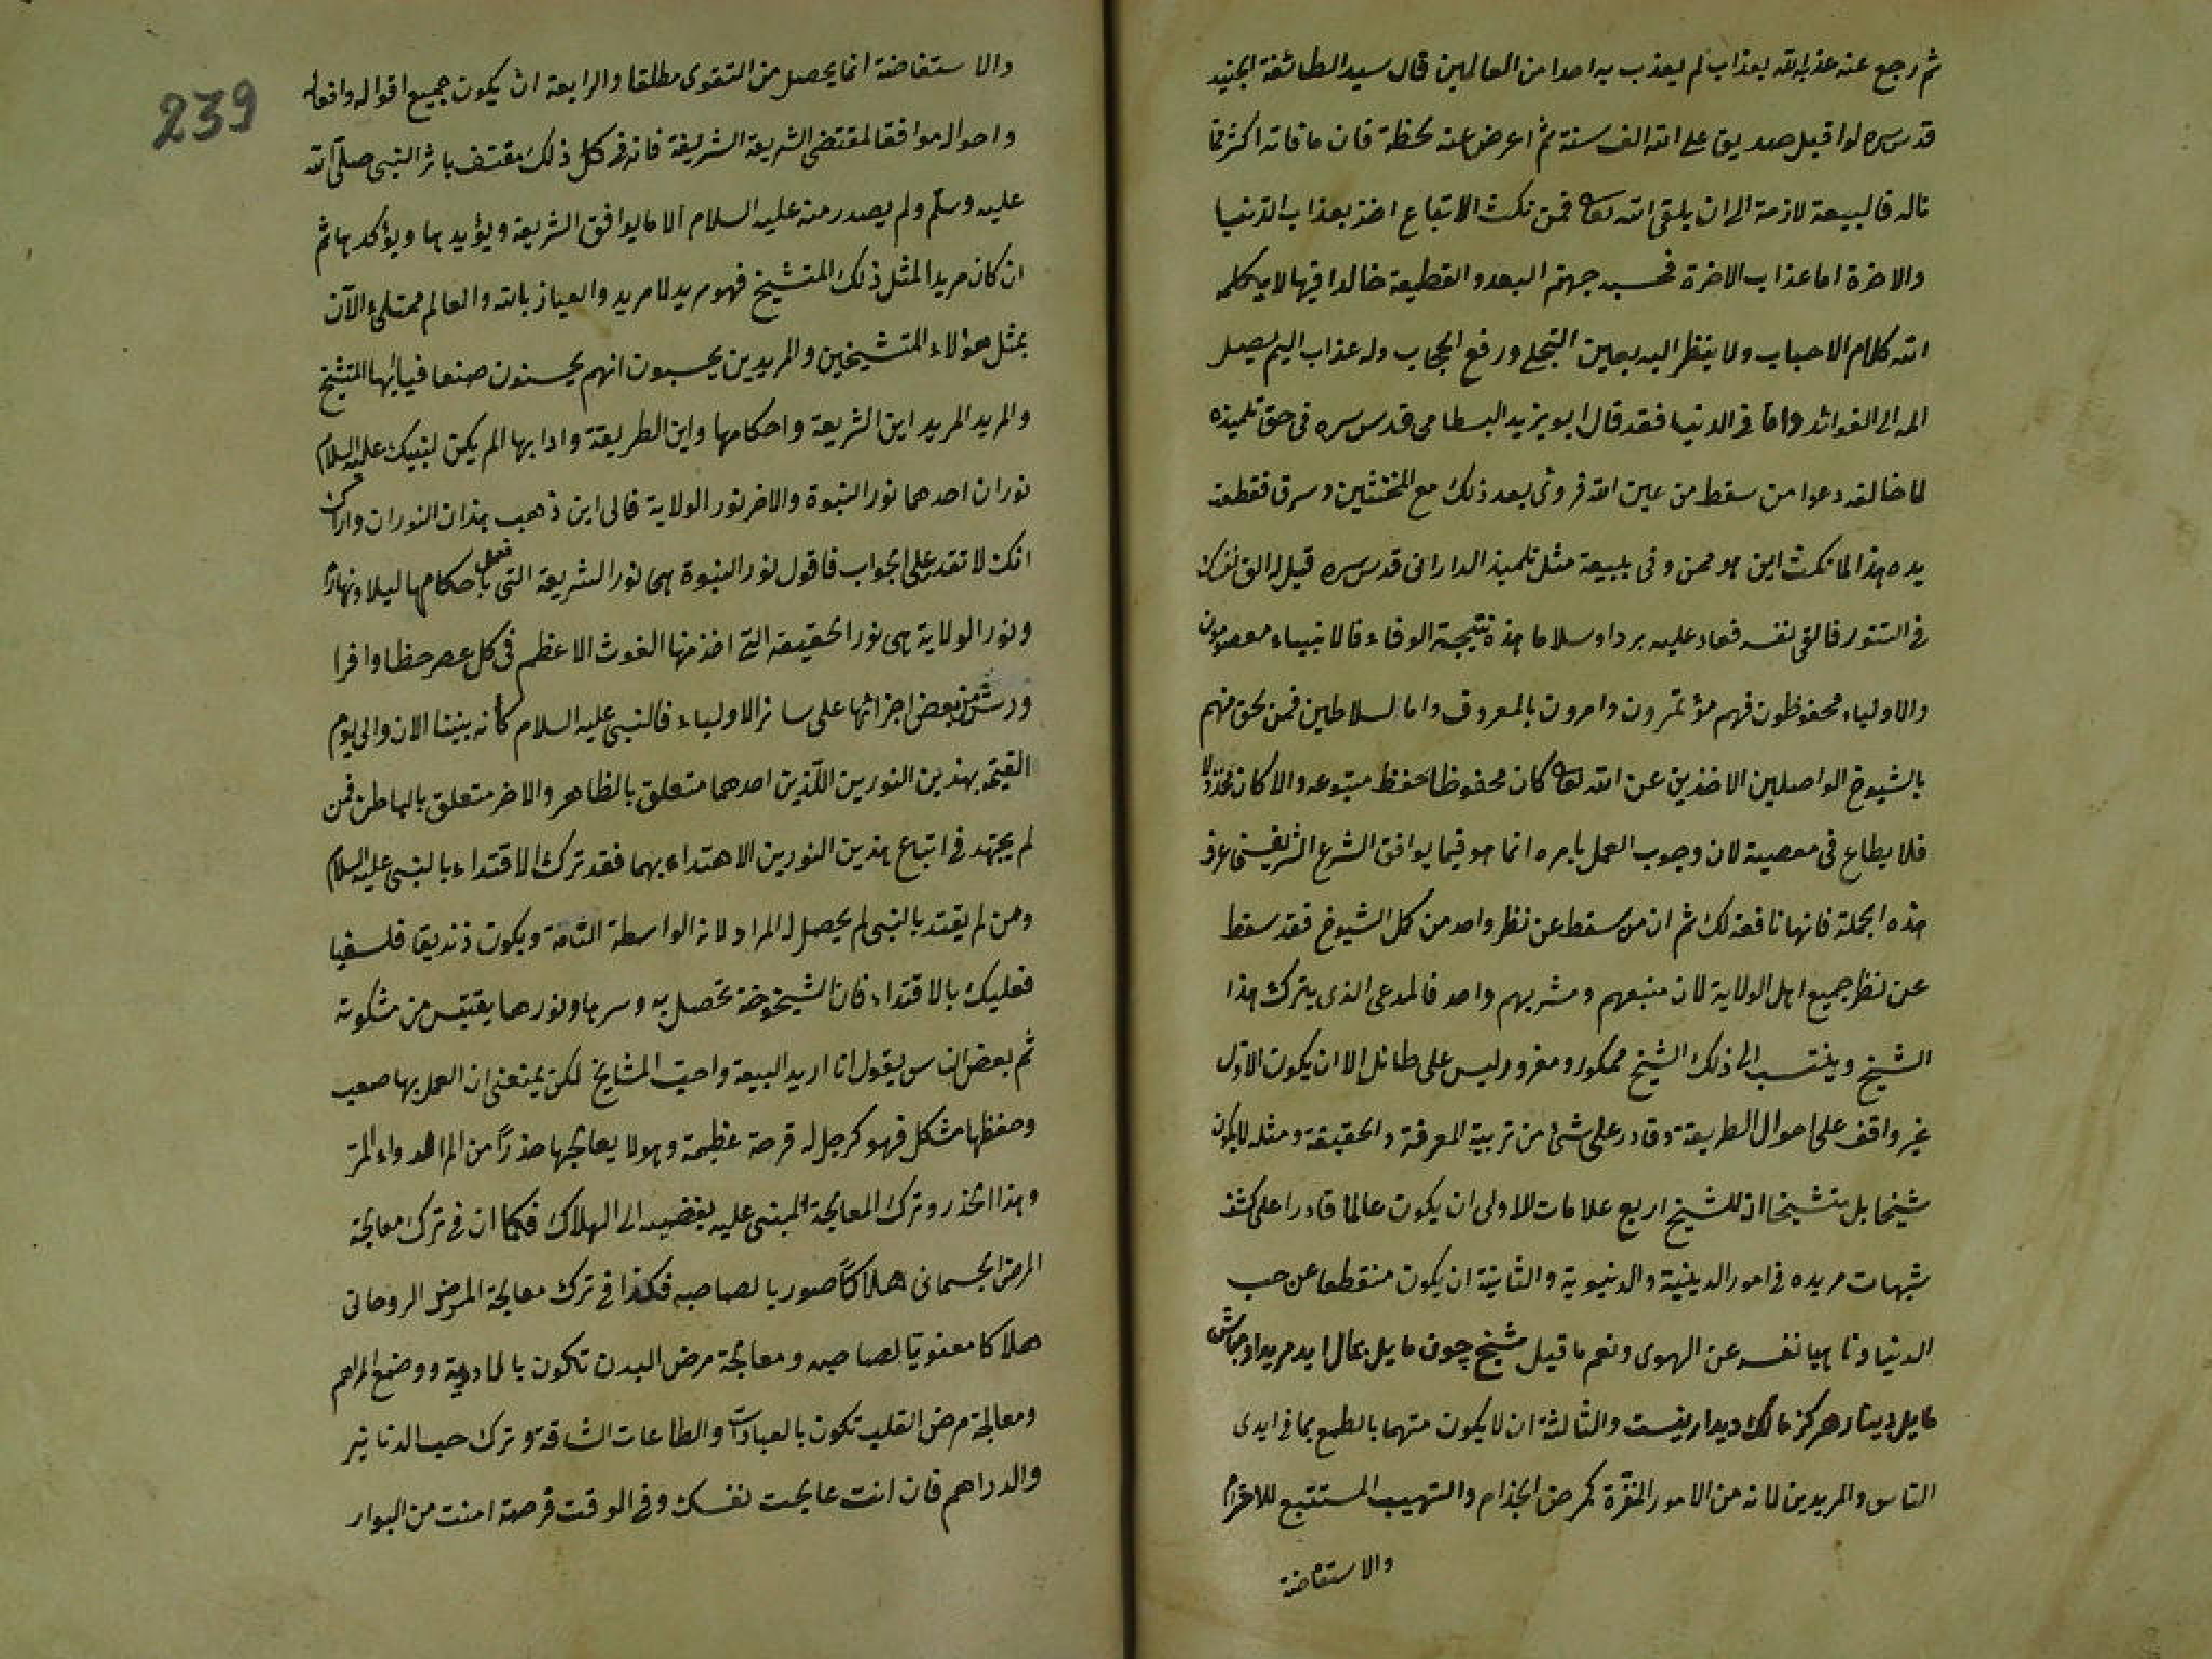 ثم رجع عنه عذبه الله بعذاب لم يعذب به احدا من العالمين قال سيد الطائفة الجنيد
قدس سره لو اقبل صديق على الله الف سنة ثم اعرض عنه لحظة فان ما فاته اكثر مما
ناله فالبيعة لازمة الى ان يلقى الله تعالى فمن نكث الاتباع اخذ بعذاب الدنيا
والاخرة اما عذاب الاخرة فحسبه جهنم البعد والقطيعة خالدا فيها لا يكلمه
الله كلام الاحباب ولا ينظر اليه بعين التجلى ورفع الحجاب وله عذاب اليم يصل
المه الى الفوائد واما فى الدنيا فقد قال ابو يزيد البسطامى قدس سره فى حق تلميذه
لما خالفه دعوا من سقط من عين الله فروئى بعد ذلك مع المخنثين وسرق فقطعت
يده هذا لما نكث اين هو ممن وفى ببيعة مثل تلميذ الدارانى قدس سره قيل له الق نفسك
فى التنور فالقى نفسه فعاد عليه بردا وسلاما هذه نتيجة الوفاء فالانبياء معصومون
والاولياء محفوظون فهم مؤتمرون وامرون بالمعروف واما السلاطين فمن لحق منهم
بالشيوخ الواصلين الاخذين عن الله تعالى كان محفوظا بحفظ متبوعه والا كان مخذولا
فلا يطاع فى معصية لان وجوب العمل بامره انما هو فيما يوافق الشرع الشريف فاعرف
هذه الجملة فانها نافعة لك ثم ان من سقط عن نظر واحد من كمل الشيوخ فقد سقط
عن نظر جميع اهل الولاية لان منبعهم ومشربهم واحد فالمدعى الذى يترك هذا
الشيخ وينتسب الى ذلك الشيخ ممكور ومغرور ليس على طائل الا ان يكون الاول
غير واقف على احوال الطريقة وقادر على شئ من تربية المعرفة والحقيقة ومثله لا يكون
شيخا بل متشيخا اذ للشيخ اربع علامات الاولى ان يكون عالما قادرا على كشف
شبهات مريده فى امور الدينية والدنيوية والثانية ان يكون منقطعا عن حب
الدنيا وناهيا نفسه عن الهوى ونعم ما قيل شيخ چون مايل بمال ايد مريد او مباش
مايل دينار هركز مالك ديدار نيست والثالثة ان لا يكون متهما بالطمع بما فى ايدى
الناس والمريدين لانه من الامور المنفرة كمرض الجذام والتهيب المستتبع للاحترام
والاستفاضة
239
والاستفاضة انما يحصل من التقوى مطلقا والرابعة ان يكون جميع اقواله وافعاله
واحواله موافقا لمقتضى الشريعة الشريفة فانه فى كل ذلك مقتف باثر النبى صلى الله
عليه وسلم ولم يصدر منه عليه السلام الا ما يوافق الشريعة ويؤيدها ويؤكدها ثم
ان كان مريدا لمثل ذلك المتشيخ فهو مريد لا مريد والعياذ بالله والعالم ممتلئ الآن
بمثل هؤلاء المتشيخين والمريدين يحسبون انهم يحسنون صنعا فيا ايها المتشيخ
والمريد المريد اين الشريعة واحكامها واين الطريقة وادابها الم يكن لنبيك عليه السلام
نوران احدهما نور النبوة والاخر نور الولاية فالى اين ذهب هذان النوران واراك
انك لا تقدر على الجواب فاقول نور النبوة هى نور الشريعة التى نعمل باحكامها ليلا ونهارا
ونور الولاية هى نور الحقيقة التى اخذ منها الغوث الاعظم فى كل عصر حظا وافرا
ورش من بعض اجزائها على سائر الاولياء فالنبى عليه السلام كأنه بيننا الان والى يوم
القيمة بهذين النورين اللذين احدهما متعلق بالظاهر والاخر متعلق بالباطن فمن
لم يجتهد فى اتباع هذين النورين الاهتداء بهما فقد ترك الاقتداء بالنبى عليه السلام
ومن لم يقتد بالنبى لم يحصل له المراد لانه الواسطة التامة ويكون زنديقا فلسفيا
فعليك بالاقتداء فان الشيخوخة تحصل به وسرها ونورها يقتبس من مشكوته
ثم بعض الناس يقول انا اريد البيعة واحب المشايخ لكن يمنعنى ان العمل بها صعب
وحفظها مشكل فهو كرجل له قرحة عظيمة وهو لا يعالجها حذرا من الم الدواء المر
وهذا الحذر وترك المعالجة المبنى عليه يفضيه الى الهلاك فكما ان فى ترك معالجة
المرض الجسمانى هلاكا صوريا لصاحبه فكذا فى ترك معالجة المرض الروحانى
هلاكا معنويا لصاحبه ومعالجة مرض البدن تكون بالمادوية ووضع المراهم
ومعالجة مرض القلب تكون بالعبادات والطاعات الشاقة وترك حب الدنانير
والدراهم فان انت عالجت نفسك وفى الوقت فرصة امنت من البوار